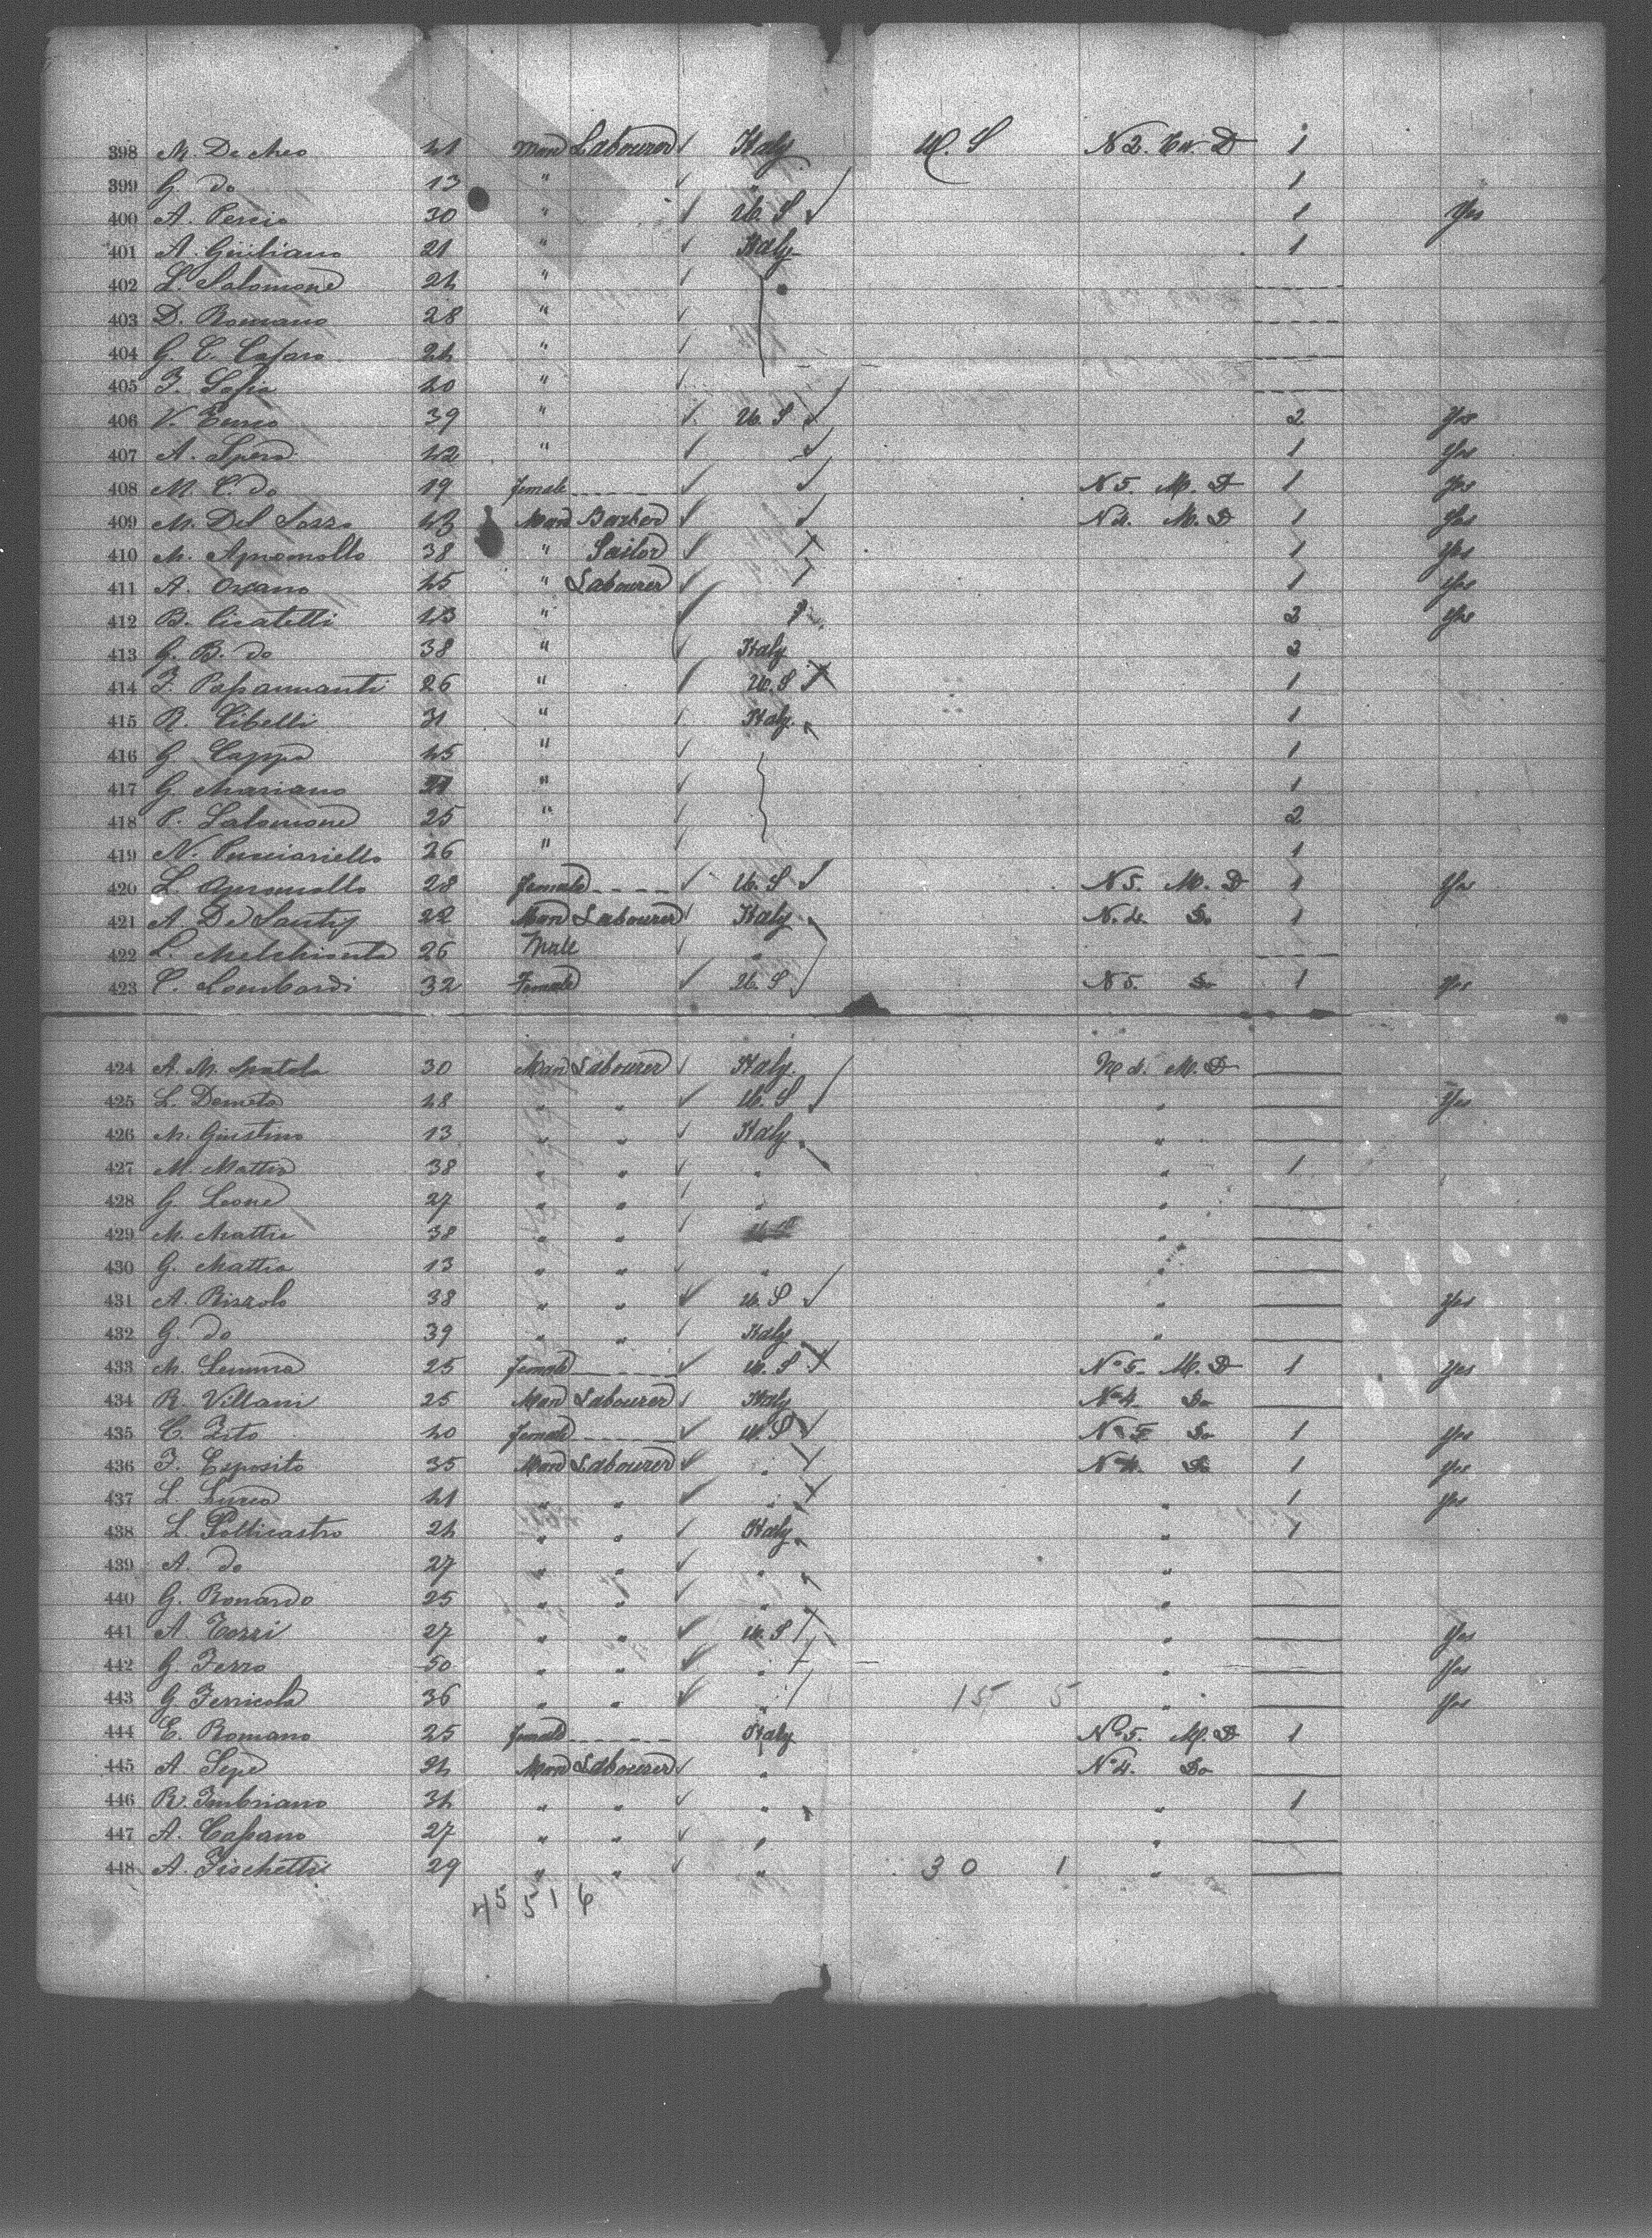 398 M. De Meo 41 Man Labourer Italy U. S N 2. Tw. D 1
399 G. do 13 " " 1
400 A. Percio 30 " U. S 1 Yes
401 A. Giuliano 21 " Italy 1
402 L. Salomone 24 "
403 D. Romano 28 "
404 G. C. Cafaro 24 "
405 F. Sofia 40 "
406 V. 39 " U. S 2 Yes
407 A. Spera 42 " 1 Yes
408 M. C. do 19 female N 5. M. D 1 Yes
409 M. Del 43 Man Barber N 4. M. D 1 Yes
410 M. 38 " Sailor 1 Yes
411 A. 45 " Labourer 1 Yes
412 B. Cicatelli 43 " 2 Yes
413 G. B. do 38 " Italy 2
414 F. Papannanti 26 " U. S 1
415 R. Cibelli 31 " Italy 1
416 G. Cappa 45 " 1
417 G. Mariano " 1
418 P. Salomone 25 " 2
419 N. Pucciariello 26 " 1
420 L. 28 Female U. S N 5. M. D 1 Yes
421 A. De Santis 22 Man Labourer Italy N. 4. Do 1
422 L. Melchionta 26 Male "
423 C. Lombardi 32 Female U. S N 5. Do 1 Yes
424 A. M. 30 Man Labourer Italy No 4. M. D
425 L. Demeto 48 " " U. S " Yes
426 M. Giustino 13 " " Italy "
427 M. Mattia 38 " " " " 1
428 G. Leone 27 " " " "
429 M. Mattia 38 " " "
430 G. Mattia 13 " " " "
431 A. Rizzolo 38 " " U. S " Yes
432 G. do 39 " " Italy "
433 M. Lemma 25 female U. S No 5. M. D 1 Yes
434 R. Villani 25 Man Labourer Italy No 4. Do
435 C. Zito 40 female U. S No 5 Do 1 Yes
436 F. Esposito 35 Man Labourer " No 4. Do 1 Yes
437 L. 41 " " " " 1 Yes
438 L. Pollicastro 24 " " Italy " 1
439 A. do 27 " " " "
440 G. Ronardo 25 " " " "
441 A. Tozzi 27 " " U. S " Yes
442 G. Ferro 50 " " " " Yes
443 G. Fernicola 36 " " " 15 5 " Yes
444 E. Romano 25 female Italy No 5. M. D 1
445 A. Sepe 24 Man Labourer " No 4. Do
446 R. Imbriano 34 " " " " 1
447 A. Capano 27 " " " "
448 A. Fischetti 29 " " " 30 1 "
45 5 1 6